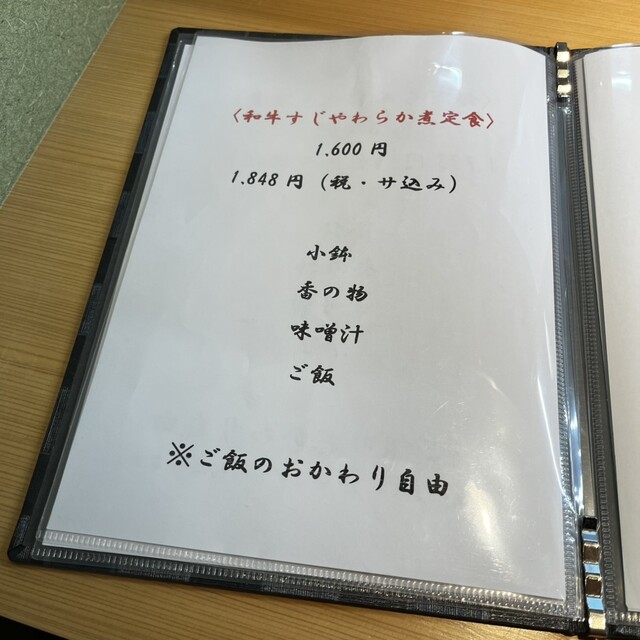 〈和牛すじやわらか煮定食〉
1.600円
1.848円（税・サ込み）
小鉢
香の物
味噌汁
ご飯
※ご飯のおかわり自由